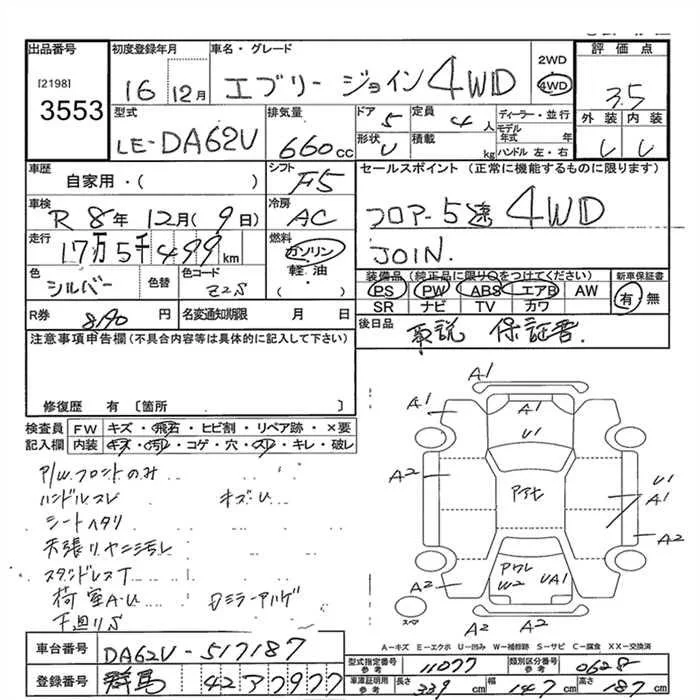 出品番号 初度登録年月 車名・グレード 2WD 評価点
[2198] 3553 16 12月 エブリー ジョイン 4WD 4WD 3.5
型式 LE-DA62V 排気量 660cc ドア 5 定員 4人 ディーラー・並行 外装 内装
形状 V 積載 kg モデル年式 年 ハンドル 左・右 U U
車歴 自家用・( ) シフト F5 セールスポイント (正常に機能するものに限ります)
車検 R8年 12月(9日) 冷房 AC フロアー5速 4WD
走行 17万5千499km 燃料 ガソリン・軽油・( ) JOIN.
色 シルバー 色替 色コード Z2S 装備品(純正品に限り○をつけてください) 新車保証書
PS PW ABS エアB AW 有・無
SR ナビ TV カワ
R券 8190円 名変通知期限 月 日 後日品 取説 保証書.
注意事項申告欄(不具合内容等は具体的に記入して下さい)
修復歴 有 〔箇所 〕
検査員記入欄 FW キズ・飛石・ヒビ割・リペア跡・×要
内装 キズ・汚れ・コゲ・穴・スレ・キレ・破レ
P/Wフロントのみ
ハンドルスレ キズU
シートヘタリ
天張りヤニ汚レ
スタンドレスT
荷室A・U Dミラーアルゲ
下廻りS
A1
A1 A1
U1
A2 A2 U1 A1
アアヒ
A2
アワレ W2 UA1
A2 A2
A2 A2
スペア
A-キズ E-エクボ U-凹み W-補修跡 S-サビ C-腐食 XX-交換済
車台番号 DA62V-517187 型式指定番号 参考 11077 類別区分番号 参考 0628
登録番号 群馬 42ア7977 車庫証明用 参考 長さ 339cm 幅 147cm 高さ 187cm